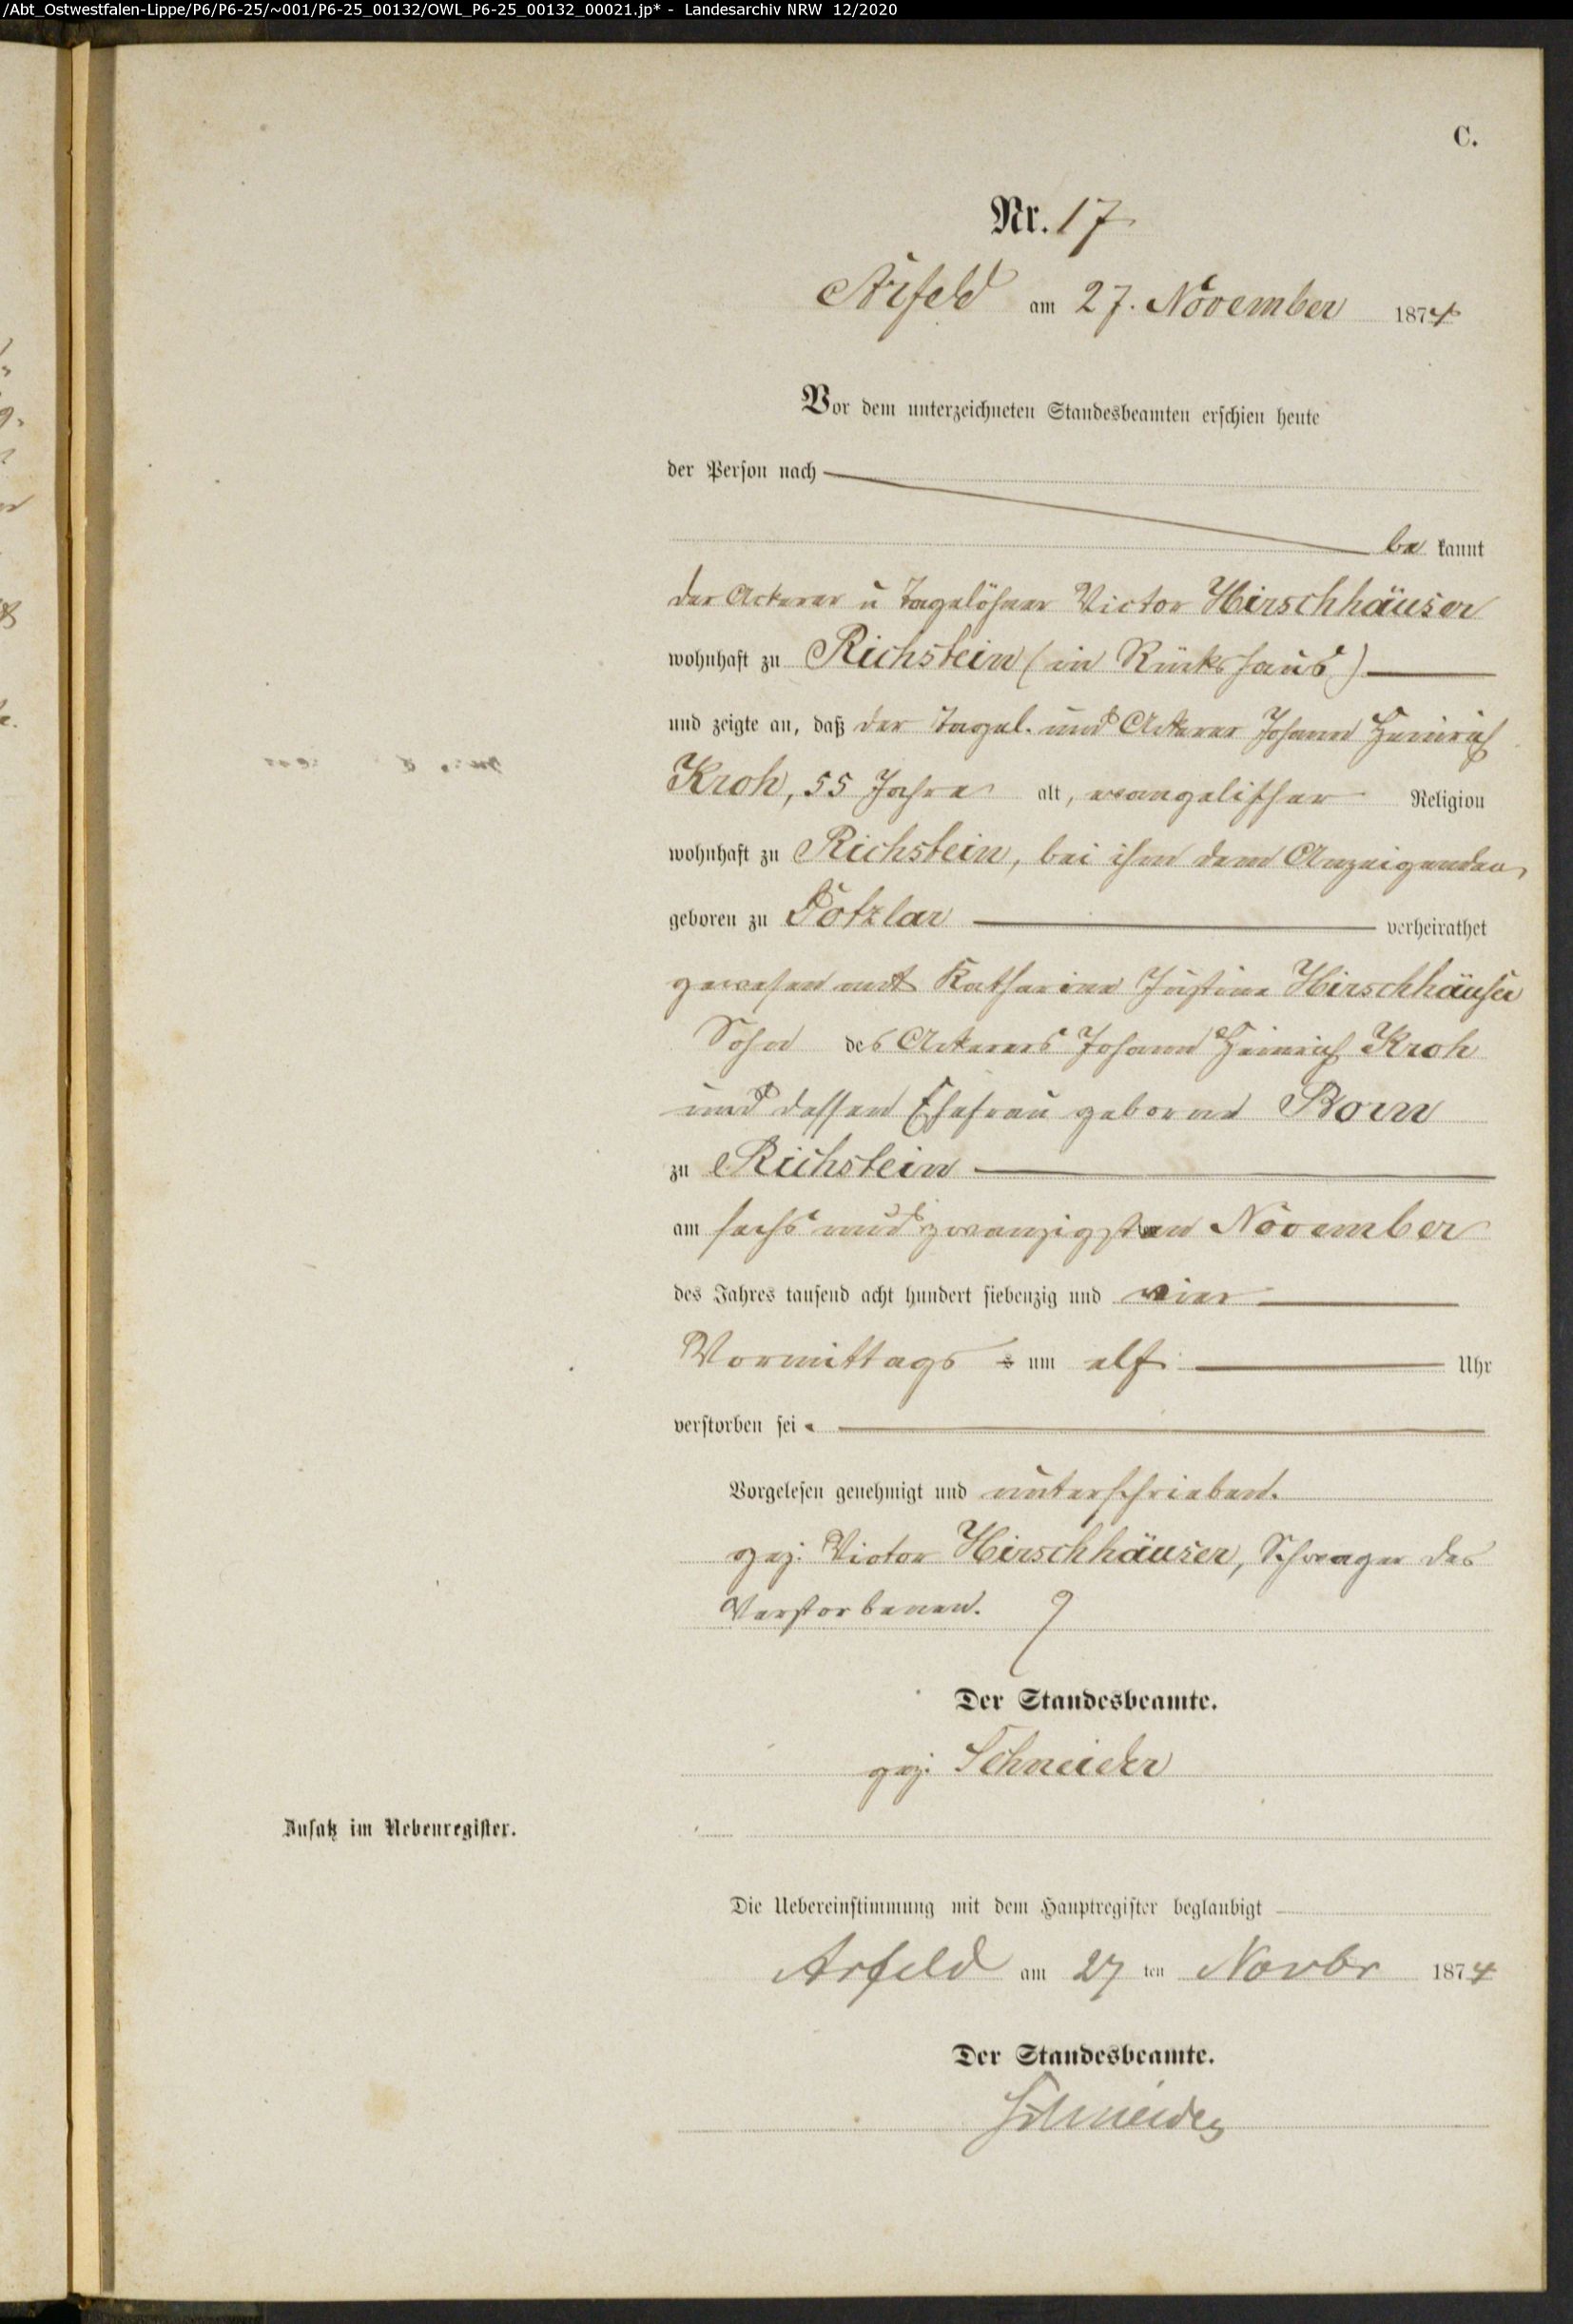 /Abt_Ostwestfalen-Lippe/P6/P6-25/~001/P6-25_00132/OWL_P6-25_00132_00021.jp* - Landesarchiv NRW 12/2020
C.
Nr. 17
Arfeld am 27. November 1874
Vor dem unterzeichneten Standesbeamten erschien heute
der Person nach
be kannt
der Ackerer u Tagelöhner Victor Hirschhäuser
wohnhaft zu Richstein (in Rückshaus)
und zeigte an, daß der Tagel. und Ackerer Johann Heinrich
Kroh, 55 Jahre alt, evangelischer Religion
wohnhaft zu Richstein, bei ihm dem Anzeigenden,
geboren zu verheirathet
gewesen mit Katharine Justine Hirschhäuser
Sohn des Ackerers Johann Heinrich Kroh
und dessen Ehefrau geborene Born
zu Richstein
am sechs und zwanzigsten November
des Jahres tausend acht hundert siebenzig und vier
Vormittags um elf Uhr
verstorben sei.
Vorgelesen genehmigt und unterschrieben.
gez. Victor Hirschhäuser, Schwager des
Verstorbenen.
Der Standesbeamte.
gez. Schneider
Zusatz im Nebenregister.
Die Uebereinstimmung mit dem Hauptregister beglaubigt
Arfeld am 27 ten Novbr 1874
Der Standesbeamte.
Schneider